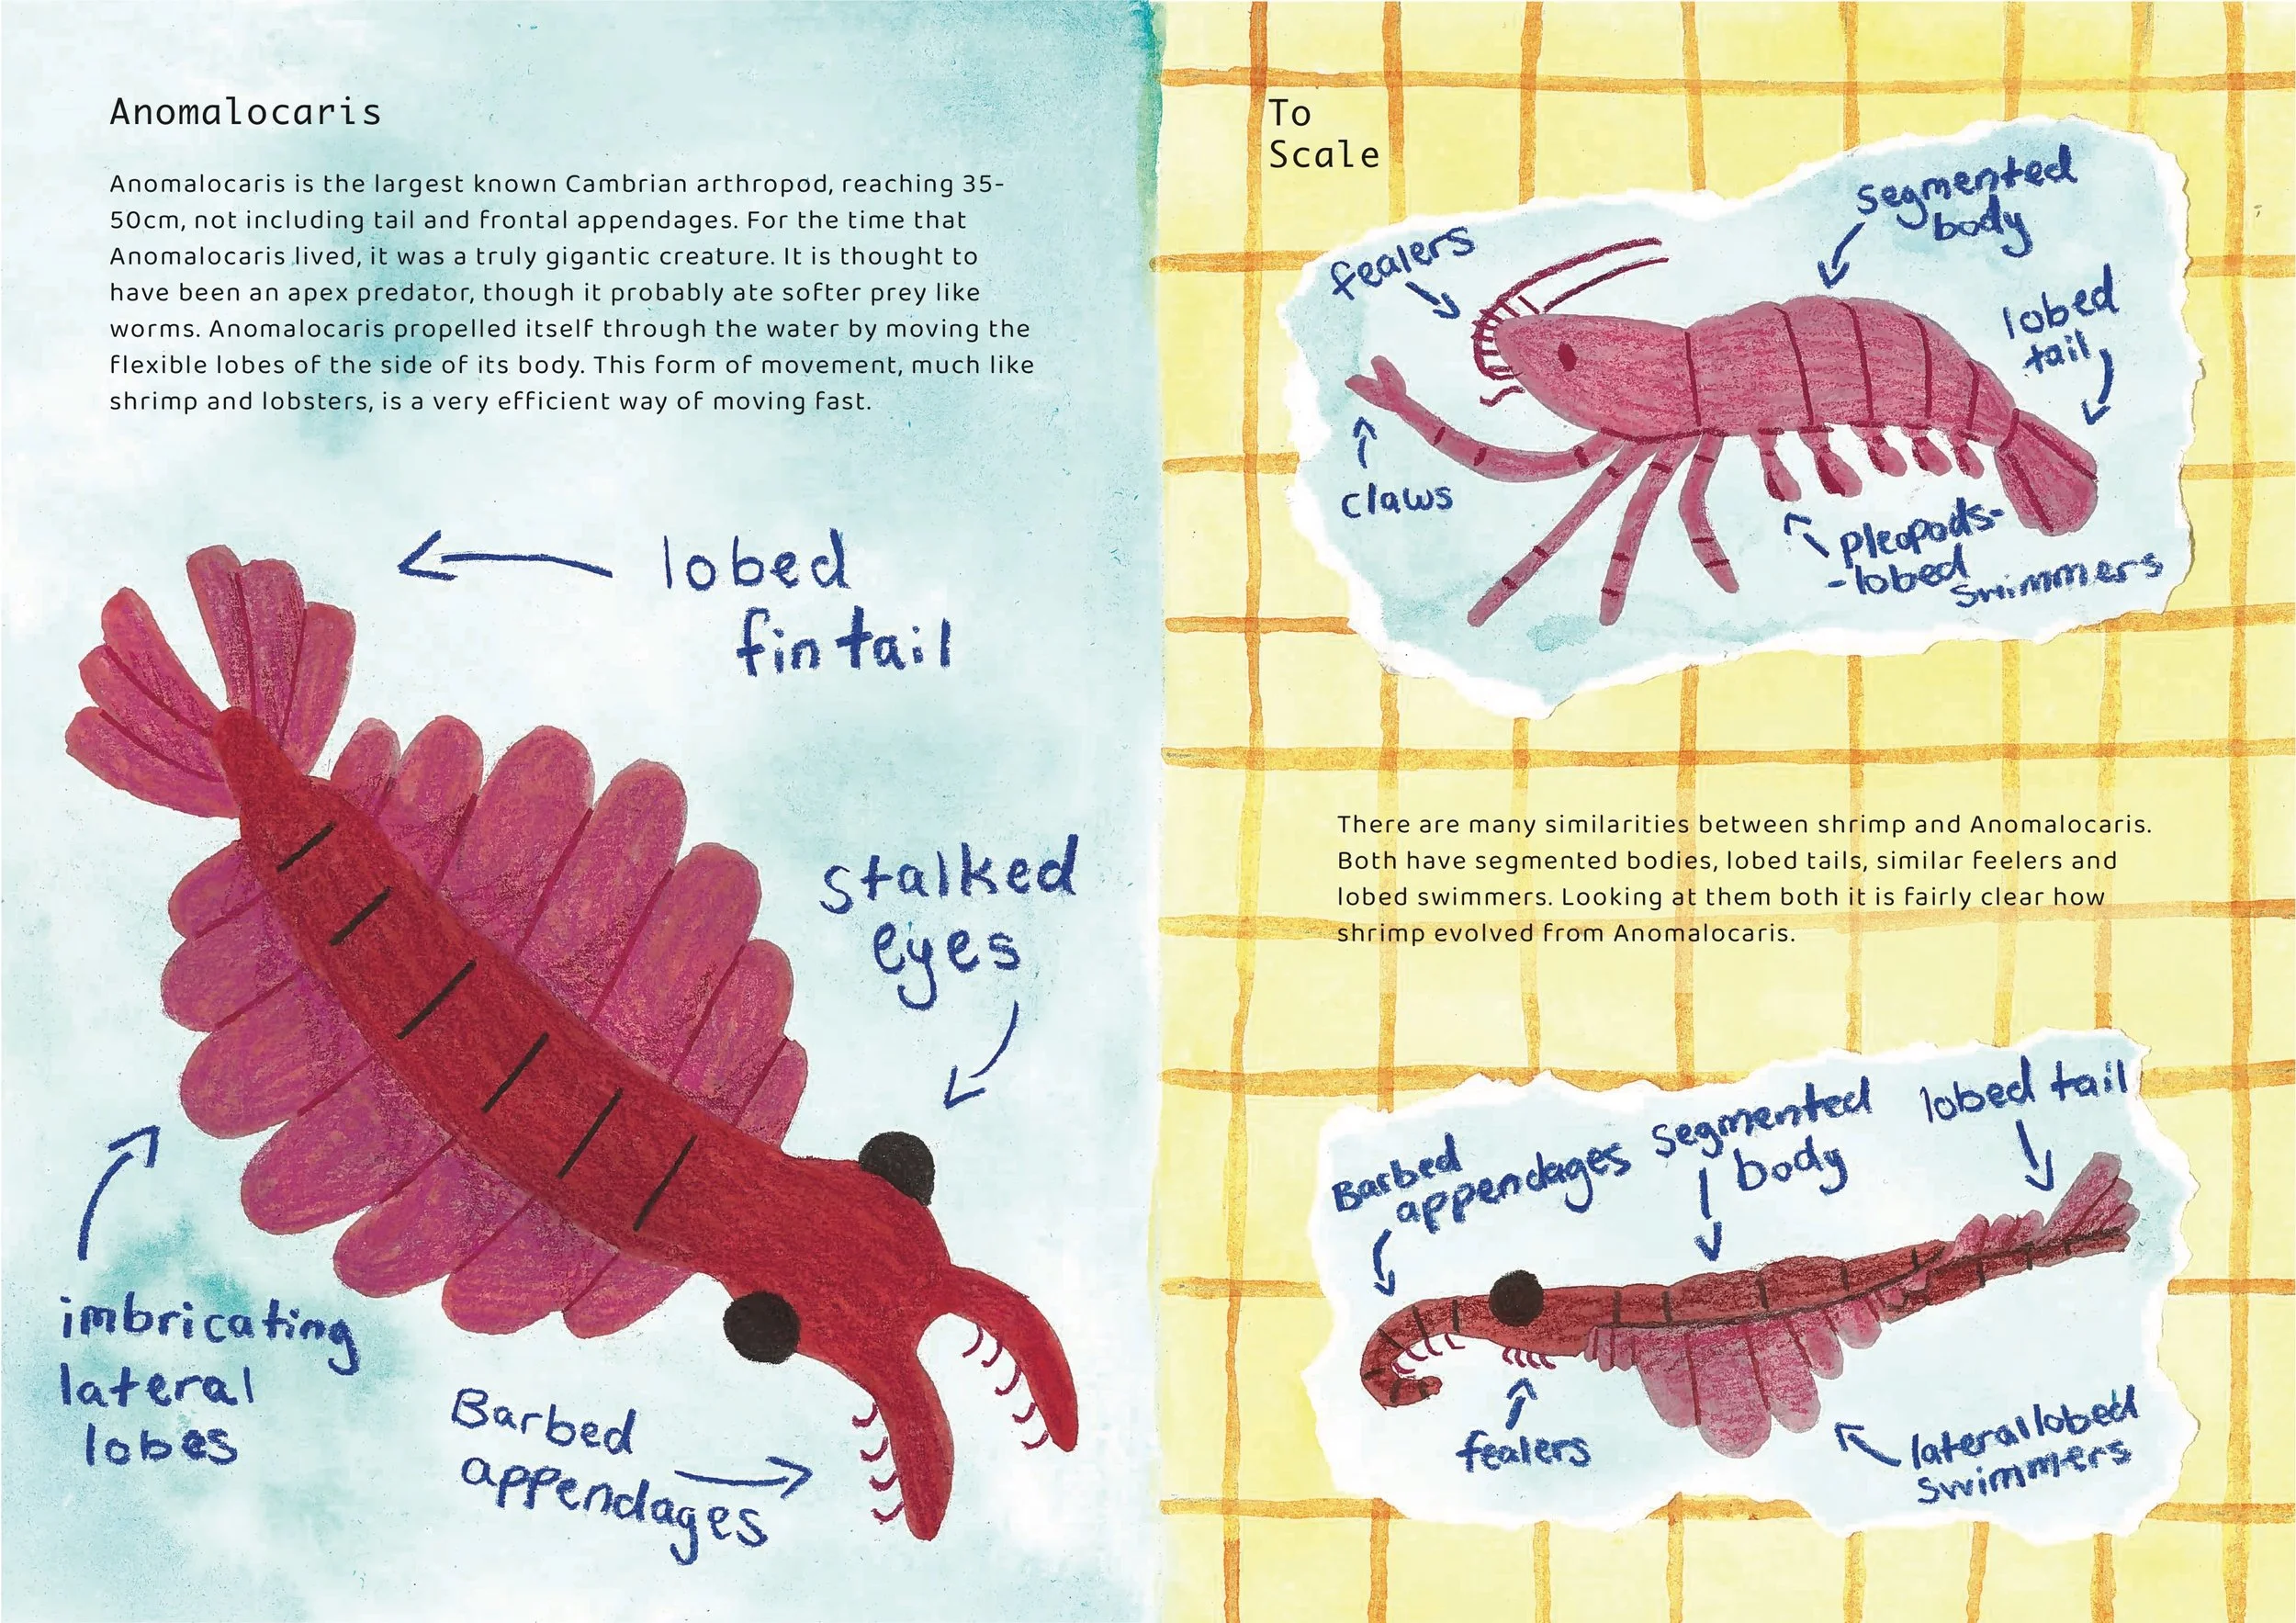 Anomalocaris
Anomalocaris is the largest known Cambrian arthropod, reaching 35-
50cm, not including tail and frontal appendages. For the time that
Anomalocaris lived, it was a truly gigantic creature. It is thought to
have been an apex predator, though it probably ate softer prey like
worms. Anomalocaris propelled itself through the water by moving the
flexible lobes of the side of its body. This form of movement, much like
shrimp and lobsters, is a very efficient way of moving fast.
lobed
fin tail
stalked
eyes
imbricating
lateral
lobes
Barbed
appendages
To
Scale
fealers
segmented
body
lobed
tail
claws
pleopods-
-lobed
swimmers
There are many similarities between shrimp and Anomalocaris.
Both have segmented bodies, lobed tails, similar feelers and
lobed swimmers. Looking at them both it is fairly clear how
shrimp evolved from Anomalocaris.
Barbed
appendages
segmented
body
lobed tail
fealers
lateral lobed
swimmers